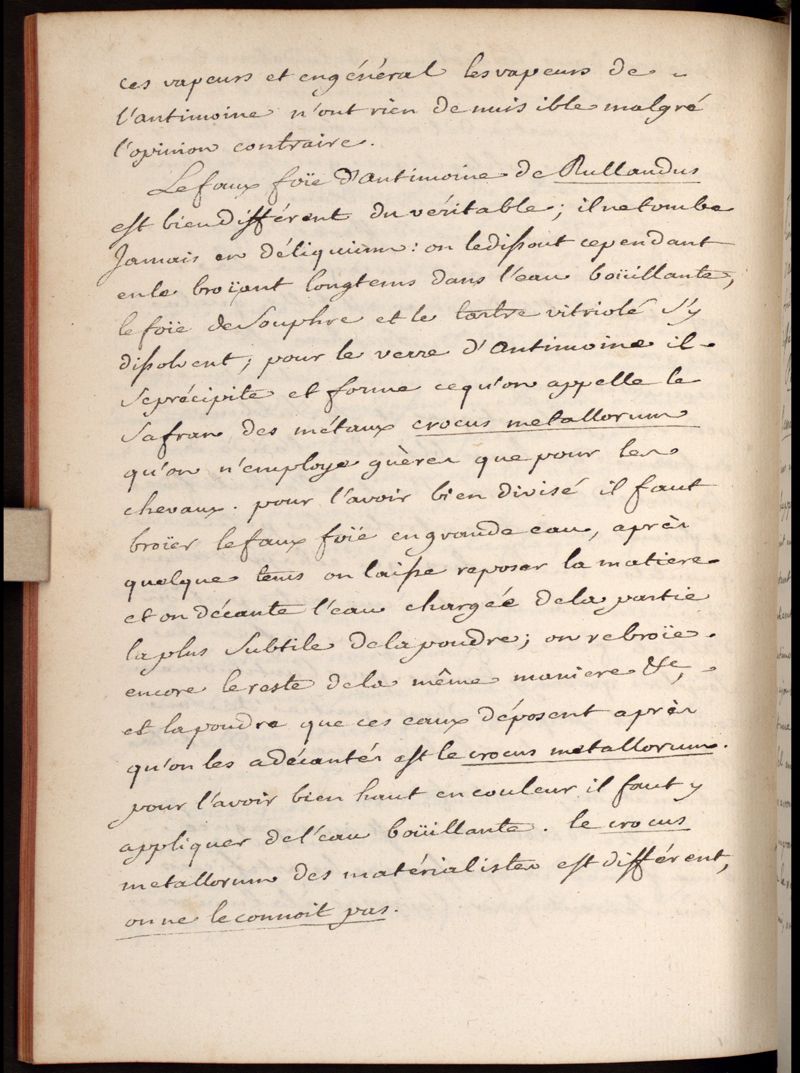 ces vapeurs et en général les vapeurs de
l'antimoine n'ont rien de nuisible malgré
l'opinion contraire.
Le faux foïe d'antimoine de Rullandus
est bien différent du véritable; il ne tombe
Jamais en déliquium: on le dissout cependant
en le broïant longtems dans l'eau boüillante,
le foïe de Souphre et le tartre vitriolé s'y
dissolvent; pour le verre d'Antimoine il
Se précipite et forme ce qu'on appelle le
Safran des métaux crocus metallorum
qu'on n'employe guères que pour les
chevaux. pour l'avoir bien divisé il faut
broïer le faux foïe en grande eau, après
quelque tems on laisse reposer la matiere
et on décante l'eau chargée de la partie
la plus Subtile de la poudre; on rebroïe
encore le reste de la même maniere &c,
et la poudre que ces eaux déposent après
qu'on les a décantés est le crocus metallorum.
pour l'avoir bien haut en couleur il faut y
appliquer de l'eau boüillante. le crocus
metallorum des matérialistes est différent,
on ne le connoit pas.